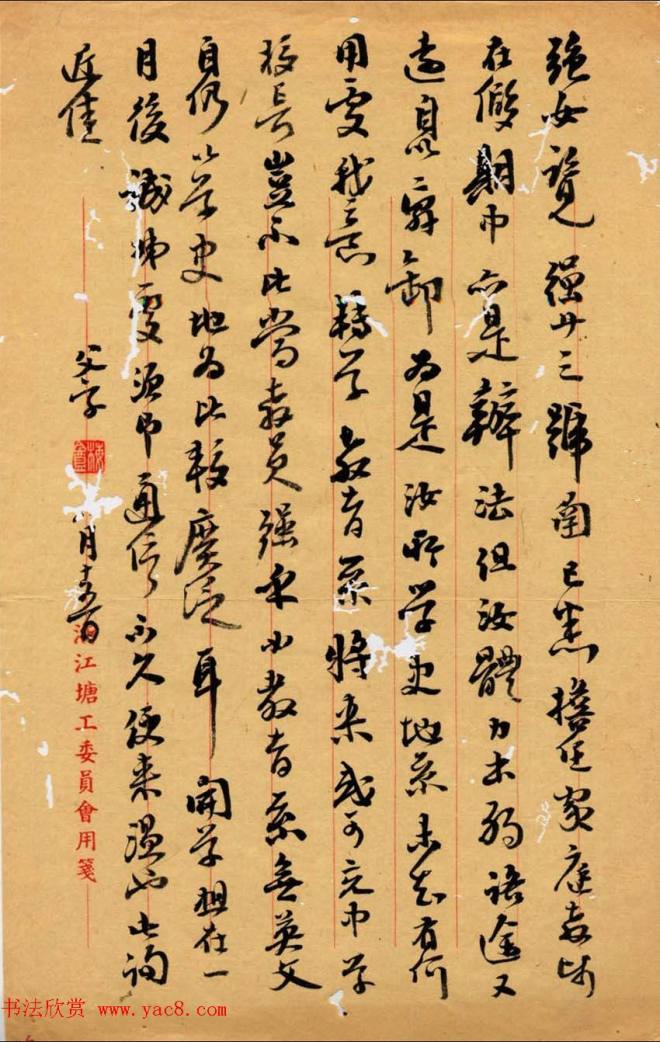 強女覽 强廿三號函已悉 擔任家庭教師
在假期中亦是辦法 但汝體力本弱 語途又
遠 自以辭卸為是 汝所學史地系未知有何
用處 我意轉學教育系 將來或可充中學
校長 豈不比當教員強乎 如教育系無英文
自仍以學史地為比較廣泛耳 開學想在一
月後 誠姊處須即通信 不久便來溫也 此詢
近佳
父字 八月十六日
江塘工委員會用箋
书法欣赏 www.yac8.com